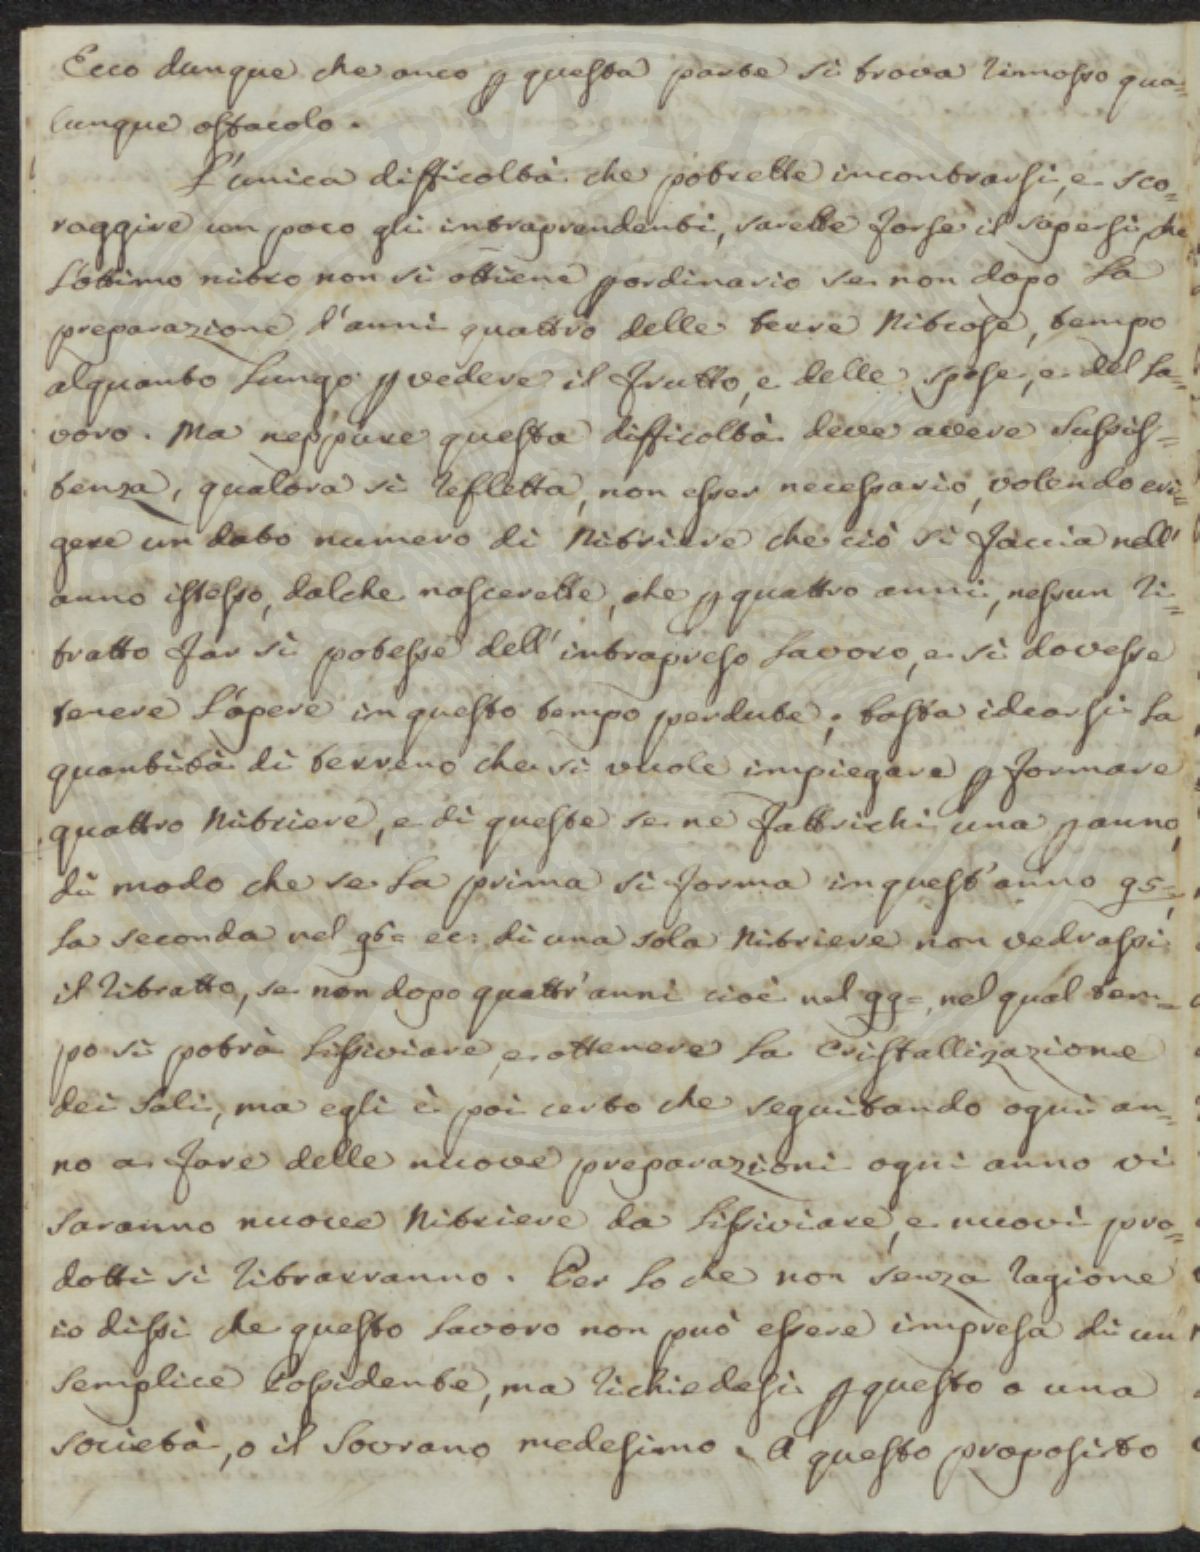 Ecco dunque che anco p questa parte si trova rimosso qua=
lunque ostacolo.
L'unica difficoltà che potrebbe incontrarsi, e sco=
raggire un poco gli intraprendenti, sarebbe forse il sapersi, che
l'ottimo nitro non si ottiene pordinario se non dopo la
preparazione d'anni quattro delle terre Nitrose, tempo
alquanto lungo p vedere il frutto, e delle spese, e del la=
voro. Ma neppure questa difficoltà deve avere sussis=
tenza, qualora si refletta, non esser necessario, volendo eri=
gere un dato numero di Nitriere che ciò si faccia nell'
anno istesso, dalche nascerebbe, che p quattro anni, nessun ri=
tratto far si potesse dell'intrapreso lavoro, e si dovesse
tenere l'opere in questo tempo perdute; basta idearsi la
quantità di terreno che si vuole impiegare p formare
quattro Nitriere, e di queste se ne fabbrichi una p anno,
di modo che se la prima si forma in quest'anno 95=,
la seconda nel 96= ec: di una sola Nitriere non vedrassi
il ritratto, se non dopo quattr'anni cioè nel 99=, nel qual tem=
po si potrà lissiviare, e ottenere la Cristallizazione
dei Sali, ma egli è poi certo che seguitando ogni an=
no a fare delle nuove preparazioni ogni anno vi
saranno nuove Nitriere da lissiviare, e nuovi pro=
dotti si ritrarranno. Per lo che non senza ragione
io dissi che questo lavoro non può essere impresa di un
semplice Possidente, ma richiedesi p questo o una
società, o il Sovrano medesimo. A questo proposito